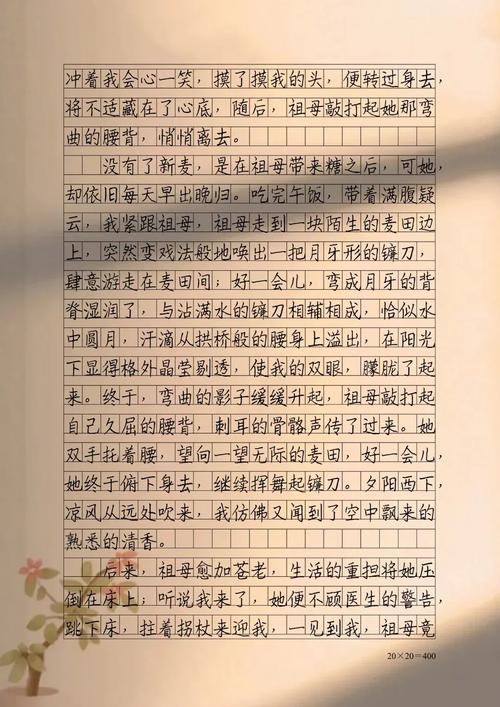 冲着我会心一笑，摸了摸我的头，便转过身去，
将不适藏在了心底，随后，祖母敲打起她那弯
曲的腰背，悄悄离去。
没有了新麦，是在祖母带来糖之后，可她
却依旧每天早出晚归。吃完午饭，带着满腹疑
云，我紧跟祖母，祖母走到一块陌生的麦田边
上，突然变戏法般地唤出一把月牙形的镰刀，
肆意游走在麦田间；好一会儿，弯成月牙的背
脊湿润了，与沾满水的镰刀相辅相成，恰似水
中圆月，汗滴从拱桥般的腰身上溢出，在阳光
下显得格外晶莹剔透，使我的双眼，朦胧了起
来。终于，弯曲的影子缓缓升起，祖母敲打起
自己久屈的腰背，刺耳的骨骼声传了过来。她
双手托着腰，望向一望无际的麦田，好一会儿，
她终于俯下身去，继续挥舞起镰刀。夕阳西下，
凉风从远处吹来，我仿佛又闻到了空中飘来的
熟悉的清香。
后来，祖母愈加苍老，生活的重担将她压
倒在床上；听说我来了，她便不顾医生的警告，
跳下床，拄着拐杖来迎我，一见到我，祖母竟
20×20=400